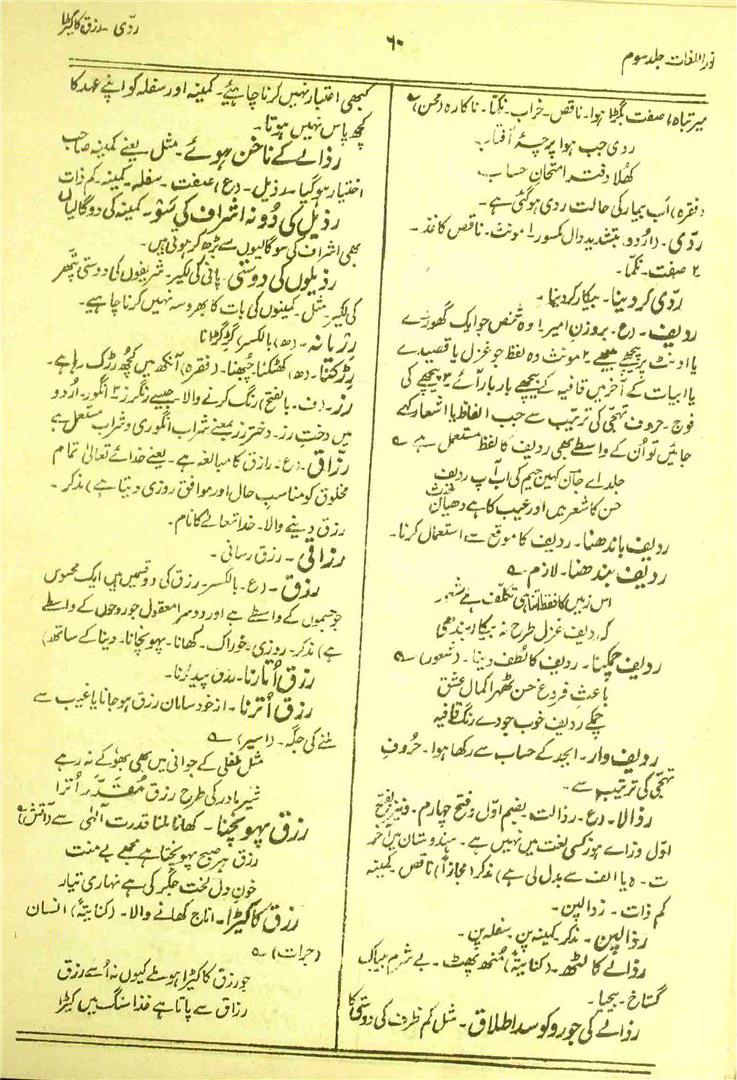 نور اللغات۔ جلد سوم
۶۰
ردّی۔ رزق کا کیڑا
میرتباہ) صفت بگڑا ہوا۔ ناقص۔ خراب۔ نکمّا۔ ناکارہ (محسن) ؎
ردی جب ہوا پرچۂ آفتاب
کھُلا دفتر امتحانِ حساب
(فقرہ) اَب بیمار کی حالت ردی ہوگئی ہے۔
ردّی۔ (اردو، بتشدید دال مکسور) ا مونث۔ ناقص کاغذ۔
۲ صفت۔ نکمّا۔
ردّی کر دینا۔ بیکار کر دینا۔
ردیف۔ (ع۔ بروزن امیر) ا وہ شخص جو ایک گھوڑے
یا اونٹ پر پیچھے بیٹھے ۲ مونث وہ لفظ جو غزل یا قصیدے
یا ابیات کے آخر میں قافیہ کے پیچھے بار بار آئے ۳ پیچھے کی
فوج۔ حروف تہجّی کی ترتیب سے جب الفاظ یا اشعار کہے
جائیں تو اُن کے واسطے بھی ردیف کا لفظ مستعمل ہے ؎
جلد اے جان کہیں جیم کی اب آپ ردیف
حسن کا شعر میں اور عیب کا ہے دھیان عبث
ردیف باندھنا۔ ردیف کا موقع سے استعمال کرنا۔
ردیف بندھنا۔ لازم ؎
اس زمیں کا فقط اتنا ہی تکلّف ہے شعور
کہ ردیف غزل طرح نہ بیکار بندھی
ردیف چمکنا۔ ردیف کا لُطف دینا۔ (شعور) ؎
باعثِ فروغِ حسن ٹھہرا کمال عشق
چمکے ردیف خوب جو دے رنگ قافیہ
ردیف وار۔ ابجد کے حساب سے رکھا ہوا۔ حُروفِ
تہجّی کی ترتیب سے۔
رذالا۔ (ع۔ رذالت۔ بضم اوّل و فتح چہارم۔ و نیز بفتح
اوّل و زاے ہوز کسی لغت میں نہیں ہے۔ ہندوستان میں آخر
ت۔ ہ یا الف سے بدل لی ہے) مذکر (مجازاً) ناقص۔ کمینہ
کم ذات۔ رذالپن۔
رذالپن۔ مذکر۔ کمینہ پن۔ سفلہ پن۔
رذالے کا لٹھ۔ (کنایتہً) مُنھ پھٹ۔ بے شرم بیباک
گستاخ۔ بیحیا۔
رذالے کی جورو کو سدا طلاق۔ مثل کم ظرف کی دوستی کا
کبھی اعتبار نہیں کرنا چاہئیے۔ کمینہ اور سفلہ کو اپنے عہد کا
کچھ پاس نہیں ہوتا۔
رذالے کے ناخن ہوئے۔ مثل یعنے کمینہ صاحب
اختیار ہوگیا۔ رذیل۔ (ع) صفت۔ سفلہ۔ کمینہ۔ کم ذات
رذیل کی دُو نہ اشراف کی سَو۔ کمینہ کی دو گالیاں
بھی اشراف کی سو گالیوں سے بڑھ کر ہوتی ہیں۔
رذیلوں کی دوستی۔ پانی کی لکیر۔ شریفوں کی دوستی پتّھر
کی لکیر۔ مثل۔ کمینوں کی بات کا بھروسہ نہیں کرنا چاہیے۔
رِڑیانہ۔ (ھ) بالکسر) گِڑگِڑانا
رِڑکنا۔ (ھ) کھٹکنا۔ چُبھنا۔ (فقرہ) آنکھ میں کچھ رڑک رہا ہے۔
رز۔ (ف۔ بالفتح) رنگ کرنے والا۔ جیسے رنگرز ۲ انگور۔ اردو
میں دختِ رز۔ دخترِ رز بمعنے شراب انگوری و شراب مستعمل ہے
رزّاق۔ (ع۔ رازق کا مبالغہ ہے۔ یعنے خدائے تعالیٰ تمام
مخلوق کو مناسب حال اور موافق روزی دیتا ہے) مذکر۔
رزق دینے والا۔ خدا تعالےٰ کا نام۔
رزاقی۔ رزق رسانی۔
رزق۔ (ع۔ بالکسر۔ رزق کی دو قسمیں ہیں ایک محسوس
جو جسموں کے واسطے ہے اور دوسرا معقول جو روحوں کے واسطے
ہے) مذکر۔ روزی۔ خوراک۔ کھانا۔ پہونچانا۔ دینا کے ساتھ)
رزق اُتارنا۔ رزق پیدا کرنا۔
رزق اُترنا۔ از خود سامان رزق ہوجانا یا غیب سے
ملنے کی جگہ۔ (اسیر) ؎
مثل طفلی کے جوانی میں بھی بھوکے نہ رہے
شیر مادر کی طرح رزق مُقدّر اُترا
رزق پہونچنا۔ کھانا ملنا قدرت الٰہی سے (آتش) ؎
رزق ہر صبح پہونچتا ہے مجھے بے منت
خون دل لخت جگر کی ہے نہاری تیار
رزق کا کیڑا۔ اناج کھانے والا۔ (کنایتہً) انسان
(جرات) ؎
جو رزق کا کیڑا ہو ملے کیوں نہ اُسے رزق
رزاق سے پاتا ہے غذا سنگ میں کیڑا